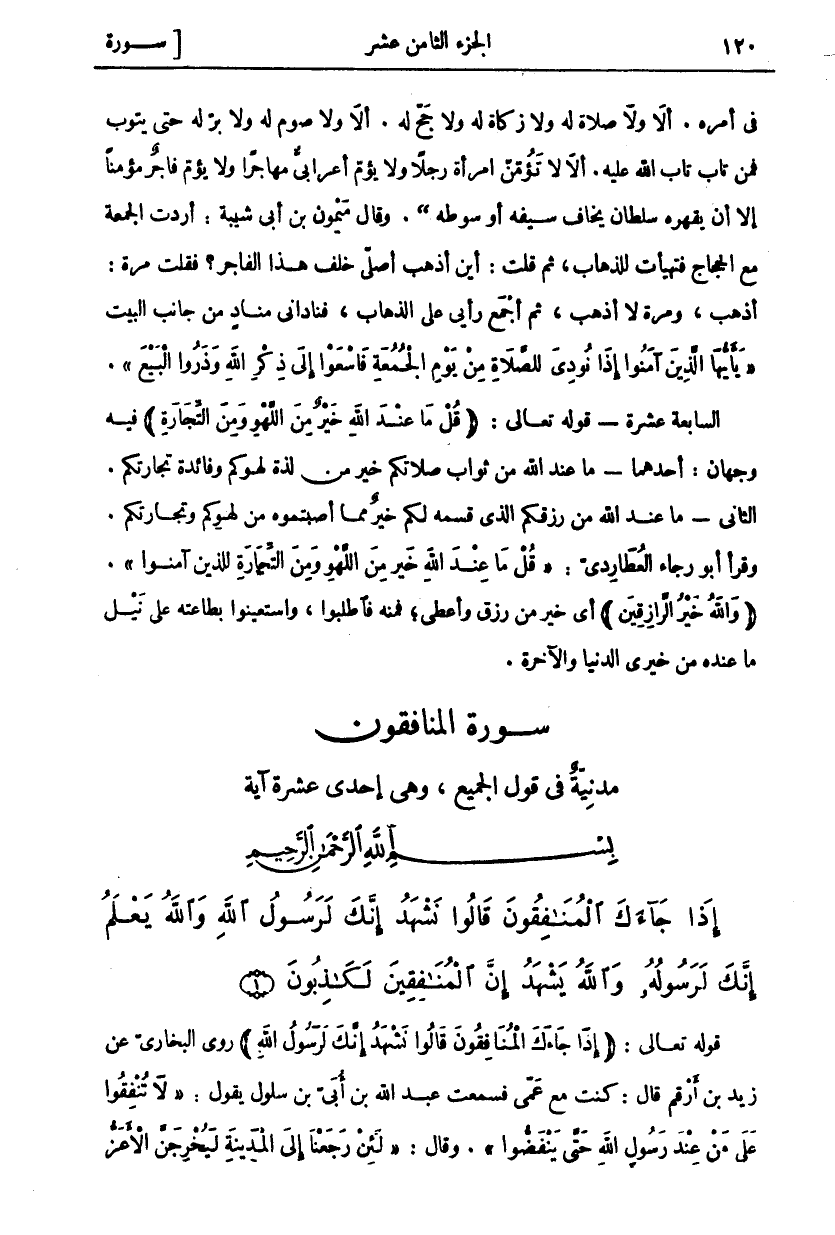 ١٢٠ الجزء الثامن عشر [ سـورة
فى أمره . ألَا ولَا صلاة له ولا زكاة له ولا حَجّ له . ألَا ولا صوم له ولا برّ له حتى يتوب
فمن تاب تاب الله عليه. ألَا لا تَؤُمّنّ امرأة رجلًا ولا يؤمّ أعرابىٌّ مهاجرًا ولا يؤمّ فاجرٌ مؤمنًا
إلا أن يقهره سلطان يخاف سيفه أو سوطه “ . وقال مَيْمون بن أبى شيبة : أردت الجمعة
مع الحجاج فتهيأت للذهاب، ثم قلت : أين أذهب أصلّى خلف هـذا الفاجر؟ فقلت مرة :
أذهب ، ومرة لا أذهب ، ثم أجْمَع رأيى على الذهاب ، فنادانى منـادٍ من جانب البيت
« يَأَيُّهَا الَّذِينَ آمَنُوا إِذَا نُودِىَ للصَّلَاةِ مِنْ يَوْمِ الْجُمُعَةِ فَاسْعَوْا إِلَى ذِكْرِ اللهِ وَذَرُوا الْبَيْعَ » .
السابعة عشرة — قوله تعـالى : ﴿ قُلْ مَا عنْـدَ اللهِ خَيْرٌ مِنَ اللَّهْوِ وَمِنَ التِّجَارَةِ ﴾ فيـه
وجهان : أحدهما — ما عند الله من ثواب صلاتكم خير من لذة لهوكم وفائدة تجارتكم .
الثانى — ما عنـد الله من رزقكم الذى قسمه لكم خيرٌ ممـا أصبتموه من لهوكم وتجـارتكم .
وقرأ أبو رجاء العُطَاردىّ : « قُلْ مَا عِنْـدَ اللهِ خَير مِنَ اللَّهْوِ وَمِنَ التِّجَارَةِ للذين آمنـوا » .
﴿ وَاللهُ خَيْرُ الرَّازِقِينَ ﴾ أى خير من رزق وأعطى؛ فمنه فاطلبوا ، واستعينوا بطاعته على نَيْـل
ما عنده من خيرى الدنيا والآخرة .
سـورة المنافقون
مدنيّةٌ فى قول الجميع ، وهى إحدى عشرة آية
بِسْمِ ٱللَّهِ ٱلرَّحْمَٰنِ ٱلرَّحِيمِ
إِذَا جَآءَكَ ٱلْمُنَٰفِقُونَ قَالُوا نَشْهَدُ إِنَّكَ لَرَسُولُ ٱللَّهِ وَٱللَّهُ يَعْلَمُ
إِنَّكَ لَرَسُولُهُۥ وَٱللَّهُ يَشْهَدُ إِنَّ ٱلْمُنَٰفِقِينَ لَكَٰذِبُونَ ١
قوله تعـالى : ﴿ إِذَا جَاءَكَ الْمُنَافِقُونَ قَالُوا نَشْهَدُ إِنَّكَ لَرَسُولُ اللهِ ﴾ روى البخارىّ عن
زيد بن أَرْقم قال : كنت مع عَمّى فسمعت عبـد الله بن أُبَىّ بن سلول يقول : « لَا تُنْفِقُوا
عَلَى مَنْ عِنْدَ رَسُولِ اللهِ حَتَّى يَنْفَضُّوا » . وقال : « لَئِنْ رَجَعْنَا إِلَى الْمَدِينَةِ لَيُخْرِجَنَّ الْأَعَزُّ